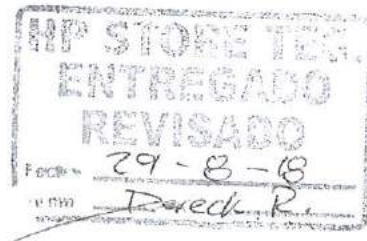 HP STORE TEG.
ENTREGADO
REVISADO
Fecha 29 - 8 - 18
Firma Dereck R.